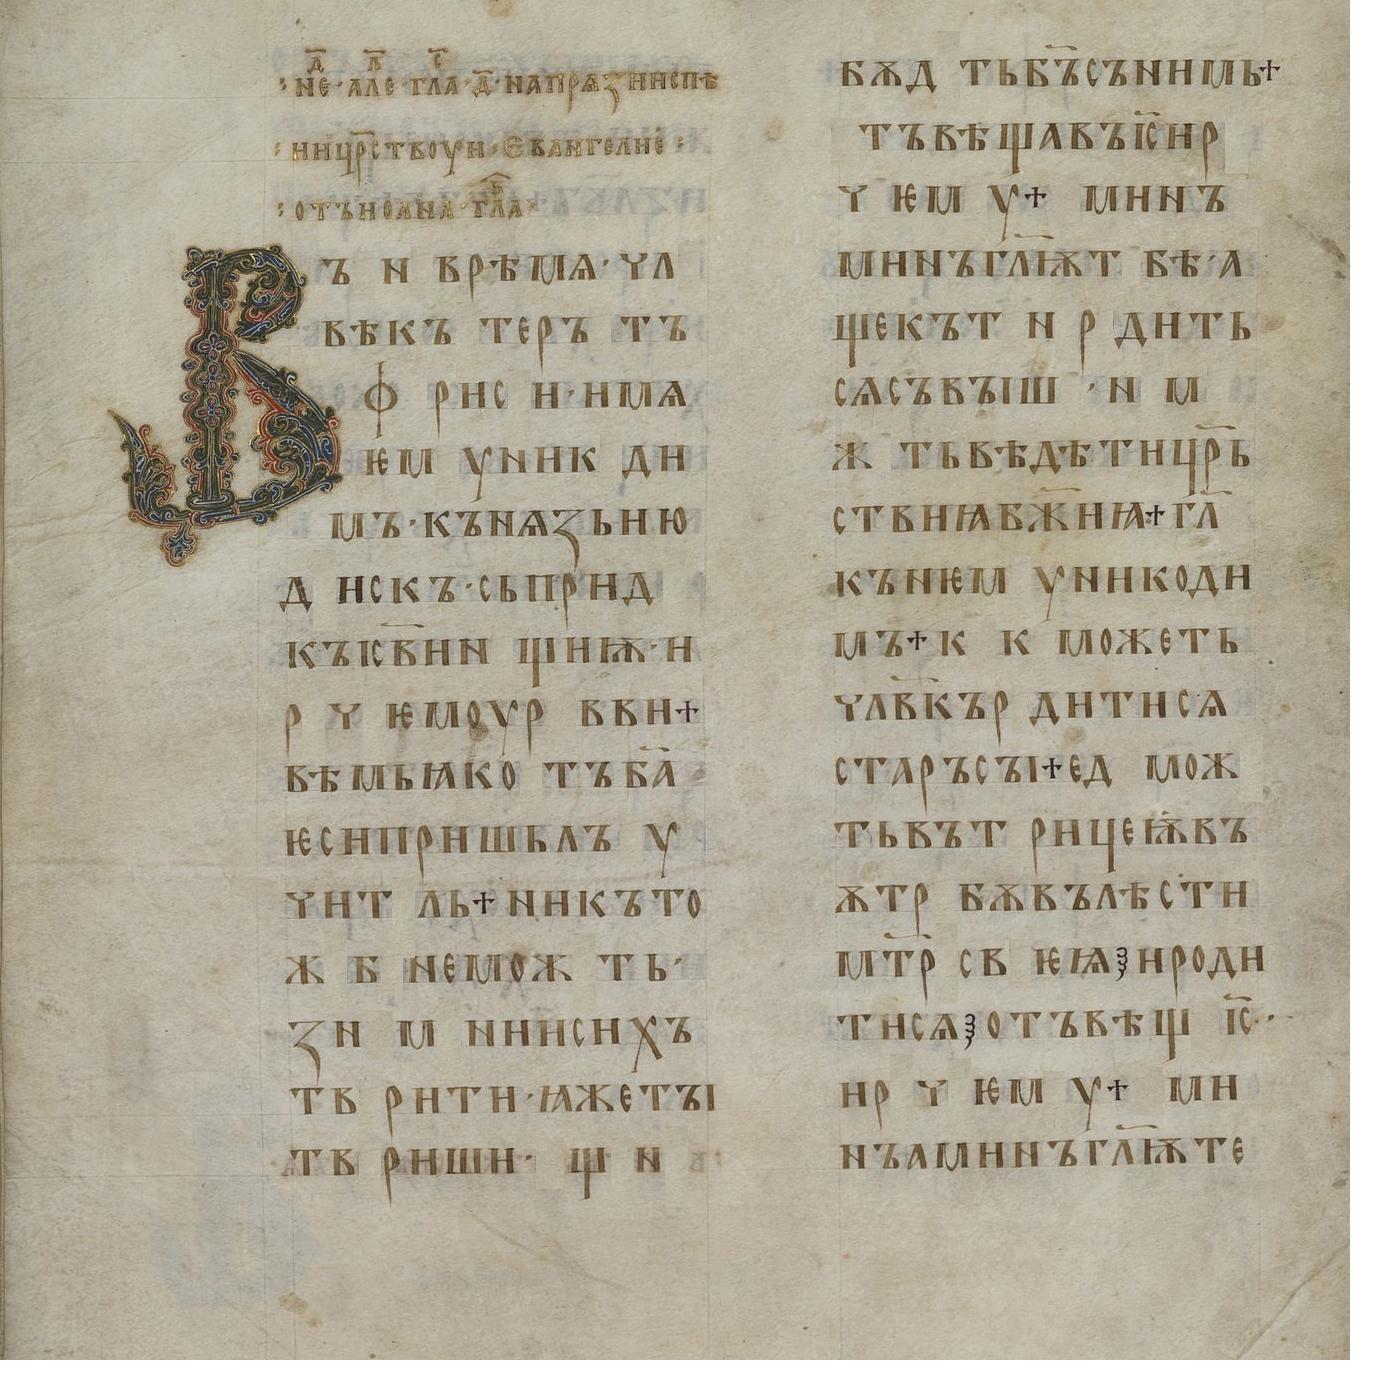 · не· але· гла· д҃· напрѧзниспѣ
: ницр҃ствоуи· Еваньгелиѥ :
: отъиоана· гла·
Въ н врѣмѧ· чл
вѣкъ теръ тъ
ф рис и· имѧ
ѥм уник ди
мъ· кънѧзьию
д искъ· сьприд
къіс҃ви н щиѭ· и
р ч ѥмоур вви+
вѣмьꙗко тъба҃
ѥсипришьлъ у
чит ль+ никъто
ж б немож 	ть·
зн м ниисихъ
тв рити· ꙗжеты
тв риши· щ н
бѫд тьбъ҃съниmь+
тъвѣщавъіс҃ир
ч ѥм у+ минъ
минъгл҃ѭт бѣ· а
щекът н р дить
сѧсъвыш · н м
ж тьвѣдѣтицр҃ь
ствиꙗбж҃иꙗ+гл҃
кънѥм уникоди
мъ+к к можеть
члв҃кър дитисѧ
старъсы+ед мож
тьвът рицеѭвъ
ѫтр бѫвълѣсти
мт҃р св ѥꙗҙироди
тисѧҙотъвѣщ іс҃·
ир ч ѥм у+ ми
нъаминъгл҃ѭте